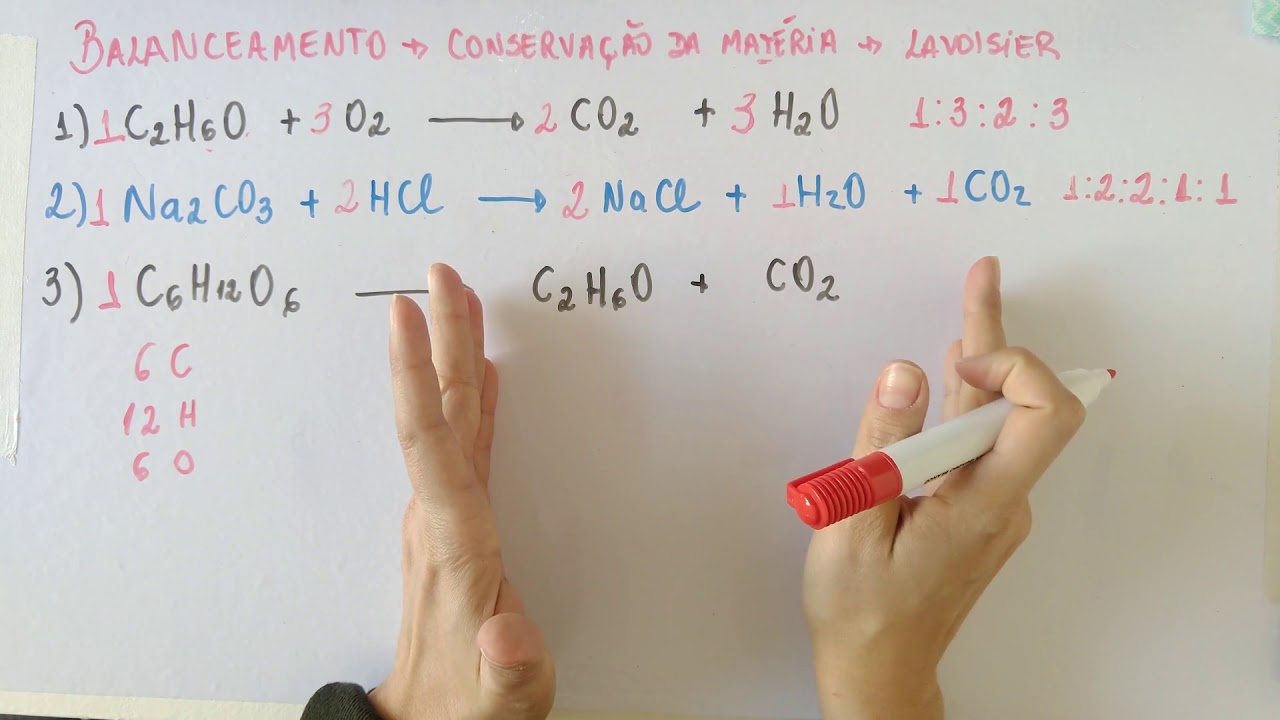 BALANCEAMENTO → CONSERVAÇÃO DA MATÉRIA → LAVOISIER
1) 1 C₂H₆O + 3 O₂ → 2 CO₂ + 3 H₂O 1:3:2:3
2) 1 Na₂CO₃ + 2 HCl → 2 NaCl + 1 H₂O + 1 CO₂ 1:2:2:1:1
3) 1 C₆H₁₂O₆ — C₂H₆O + CO₂
6 C
12 H
6 O